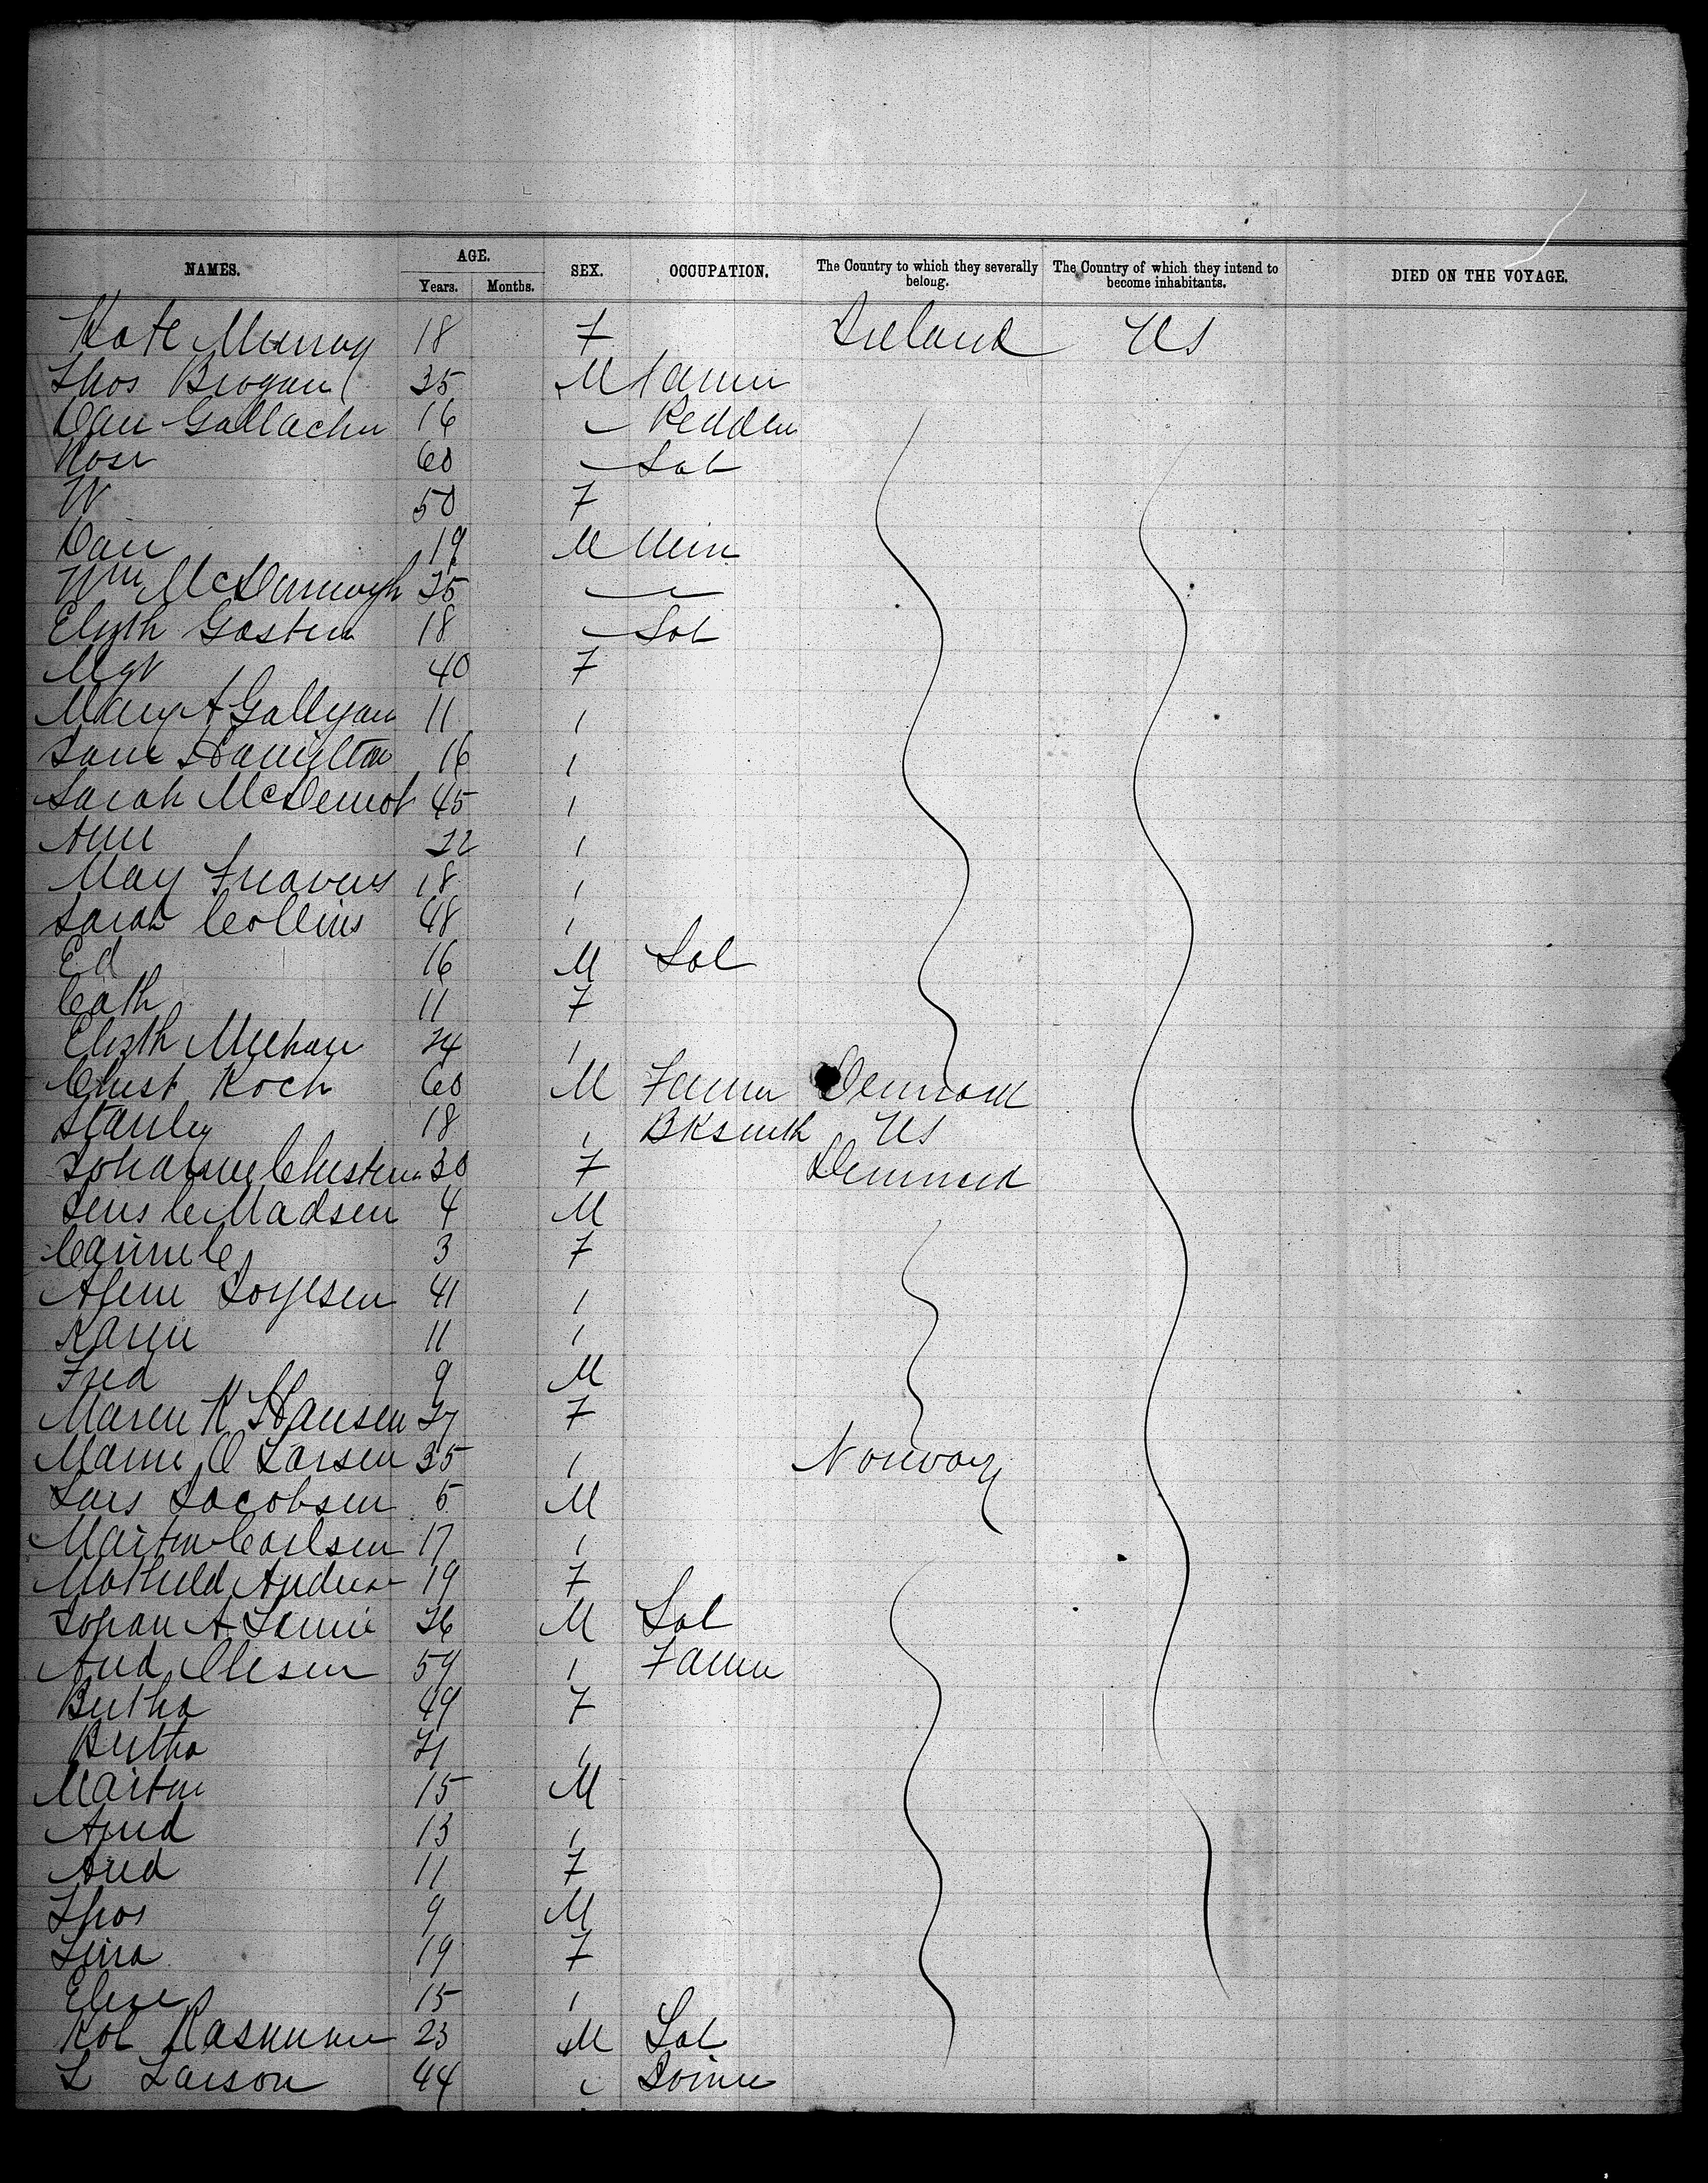 NAMES. AGE. SEX. OCCUPATION. The Country to which they severally belong. The Country of which they intend to become inhabitants. DIED ON THE VOYAGE.
Years. Months.
Kate Murray 18 F Ireland US
Thos Brogan 35 M Farmer
Dan Gallacher 16 Pedder
60 Lab
W 50 F
Dan 19 M Min
Wm McDonough 25
Elizth 18 Lab
Mgt 40 F
Mary A Gallyan 11
Jane Hamilton 16
Sarah McDermot 45
Ann 22
May Travers 18
Sarah Collins 48
Ed 16 M Lab
Cath 11 F
Elizth Meehan 24
Christ Koch 60 M Farmer Denmark
Stanley 18 BKsmith US
Johanne Christen 30 F Denmark
Jens C Madsen 4 M
3 F
41
Karen 11
Fred 9 M
Maren K Hansen 27 F
Marie O Larsen 35 Norway
Lars Jacobsen 5 M
Martin Carlsen 17
Mathild Anders 19 F
Johan A 26 M Lab
And Olesen 54 Farmer
Bertha 49 F
Bertha 21
Martin 15 M
13
And 11 F
Thos 9 M
Lina 19 F
Elise 15
Rasmusen 23 M Lab
L Larson 44 Joiner